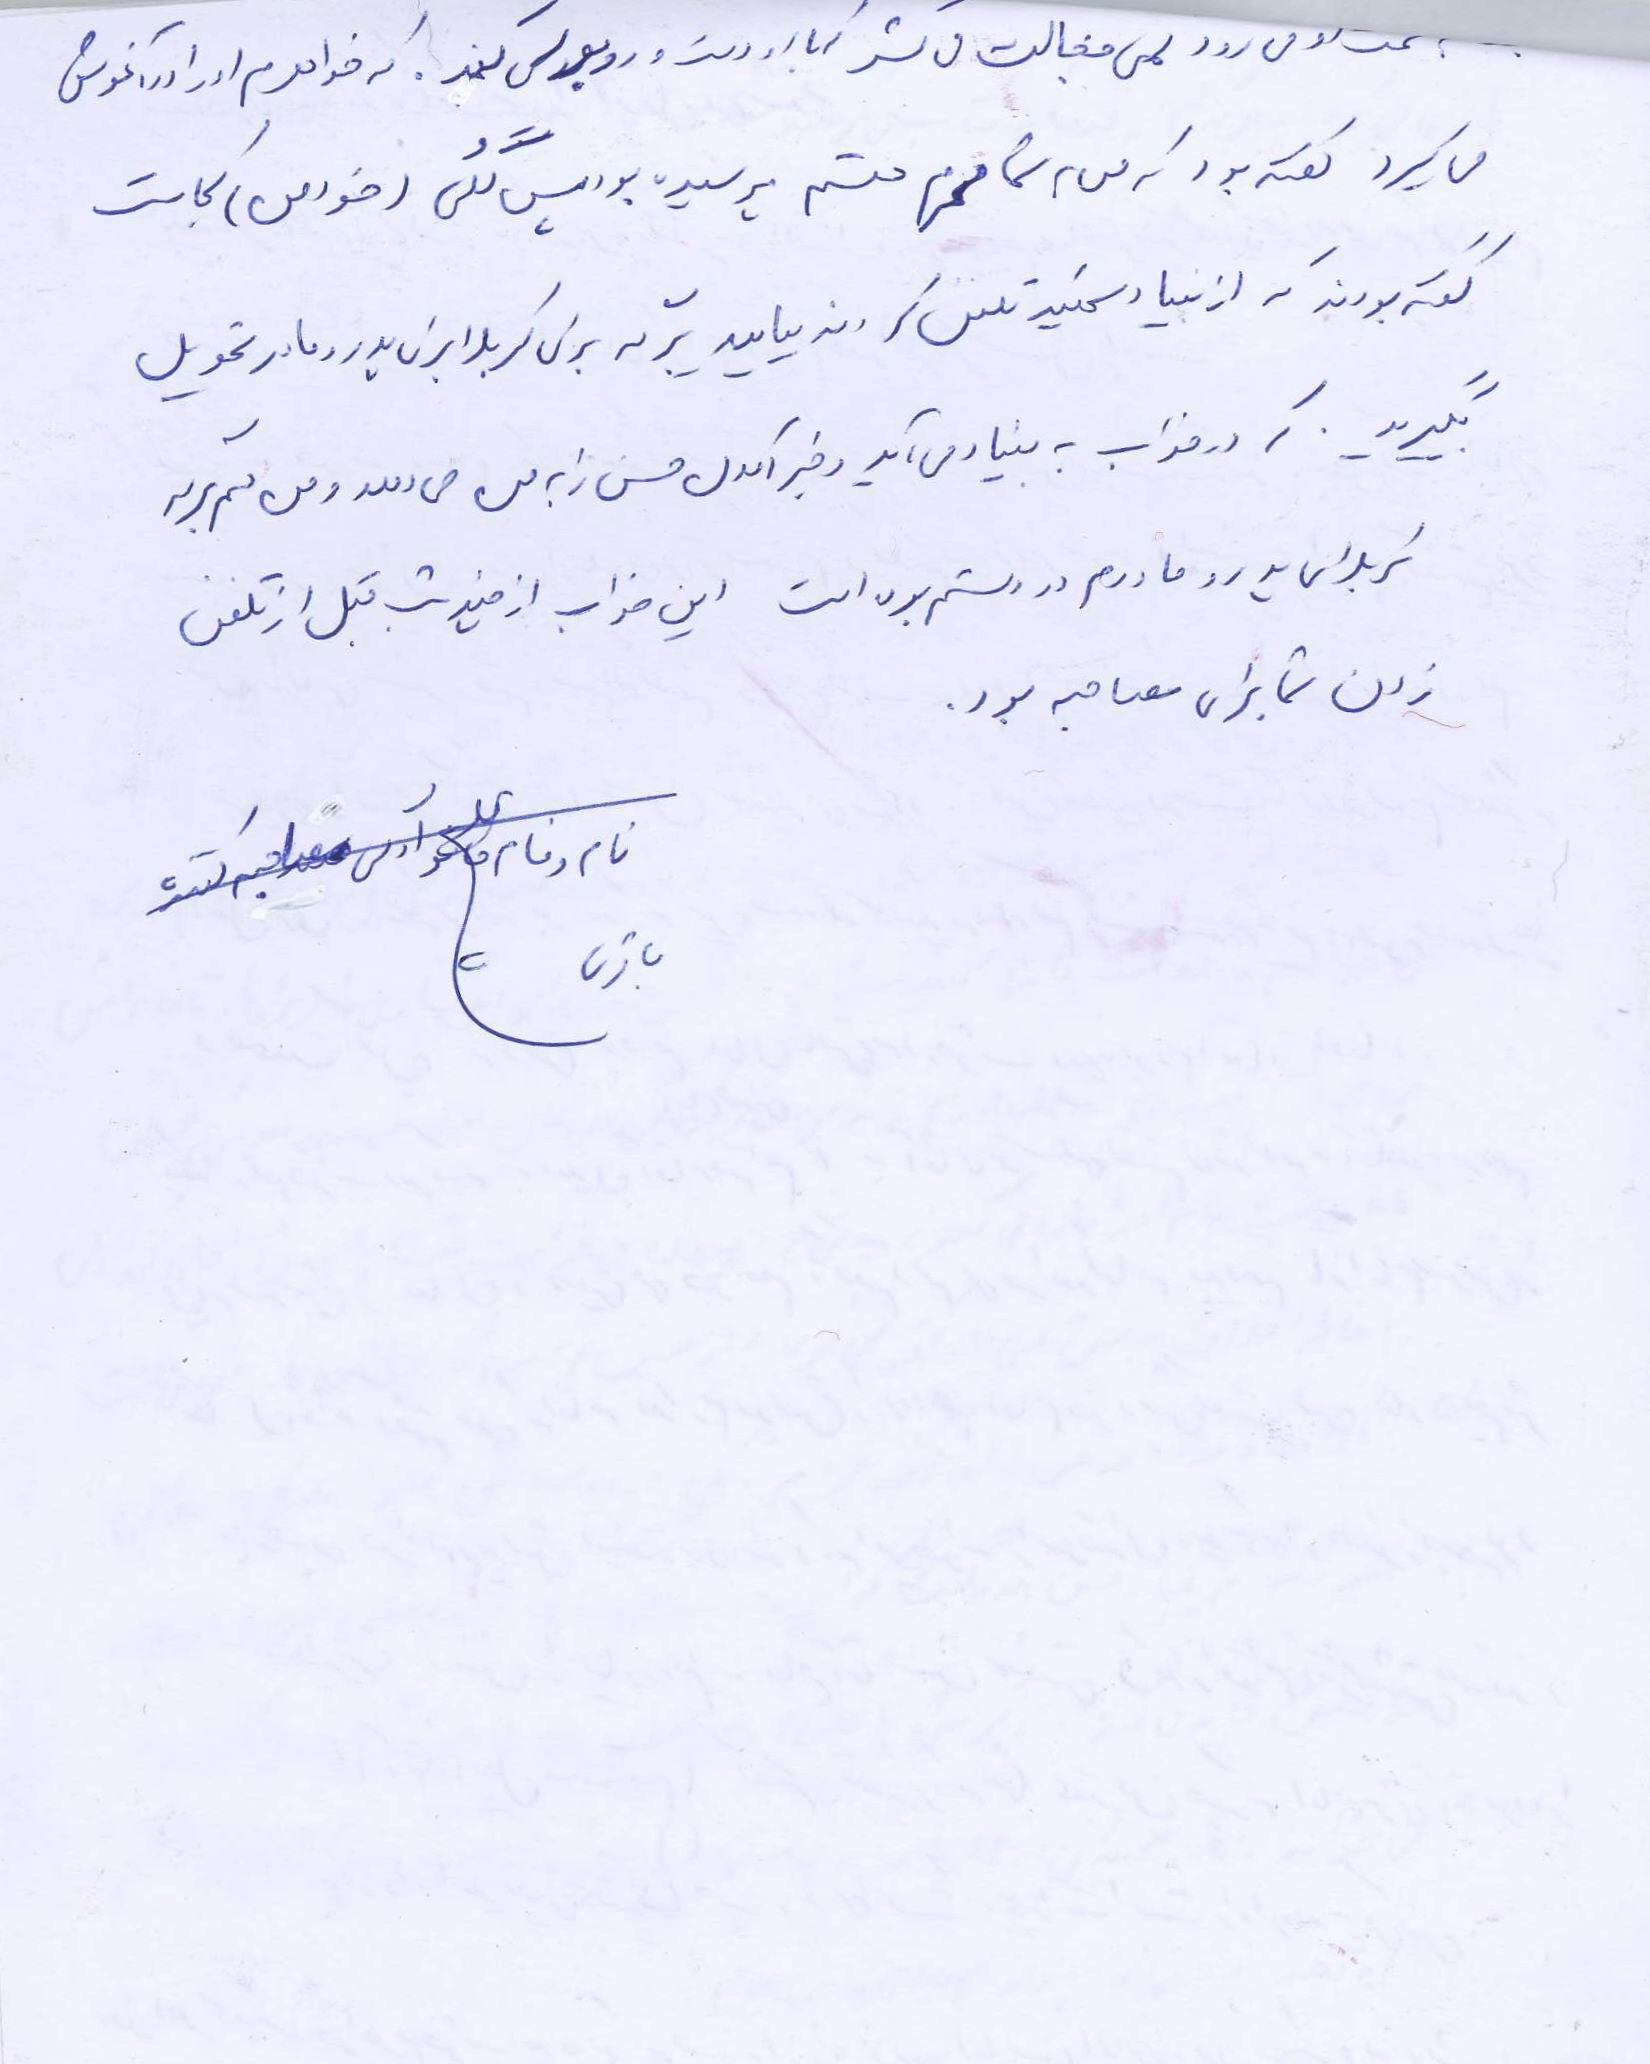 سمت او می رود کمی خجالت می کشد که با او دست و روبوسی کند. که خواهرم او را در آغوش
می گیرد گفته بود که من به شما محرم هستم پرسیده بود پس گلی (خود من) کجاست
گفته بودند که از بنیاد مسکن تلفن کردند بیایید برگه برای کربلا برای پدر و مادر تحویل
بگیرید. که در خواب به بنیاد می آید و خبر آمدن حسن را به من می دهد و من هم برگه
کربلای پدر و مادرم در دستم بوده است این خواب از چند شب قبل از تلفن
زدن شما برای مصاحبه بود.
نام و نام خانوادگی مصاحبه کننده